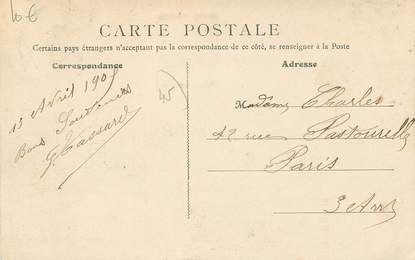 10€
CARTE POSTALE
Certains pays étrangers n'acceptant pas la correspondance de ce côté, se renseigner à la Poste
Correspondance
Adresse
15 Avril 1905
Bons Souvenirs
G Cassard
45
Madame Charles
42 rue Pastourelle
Paris
3 Arr